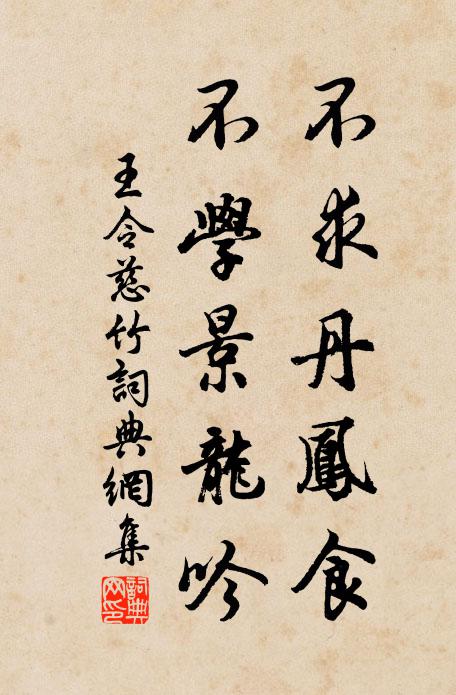 不求丹鳳食
不學景龍吟
王令慈竹詞典網集
詞典網印